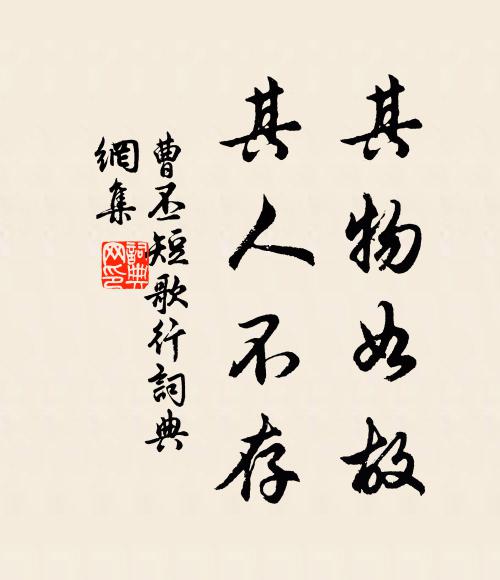 其物如故
其人不存
曹丕短歌行詞典
網集
詞典
网印